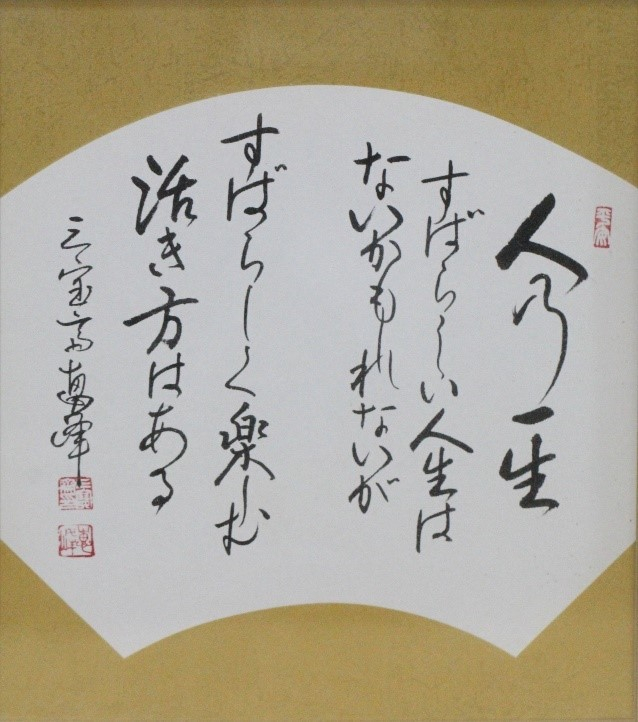 人乃一生
すばらしい人生は
ないかもしれないが
すばらしく楽しむ
活き方はある